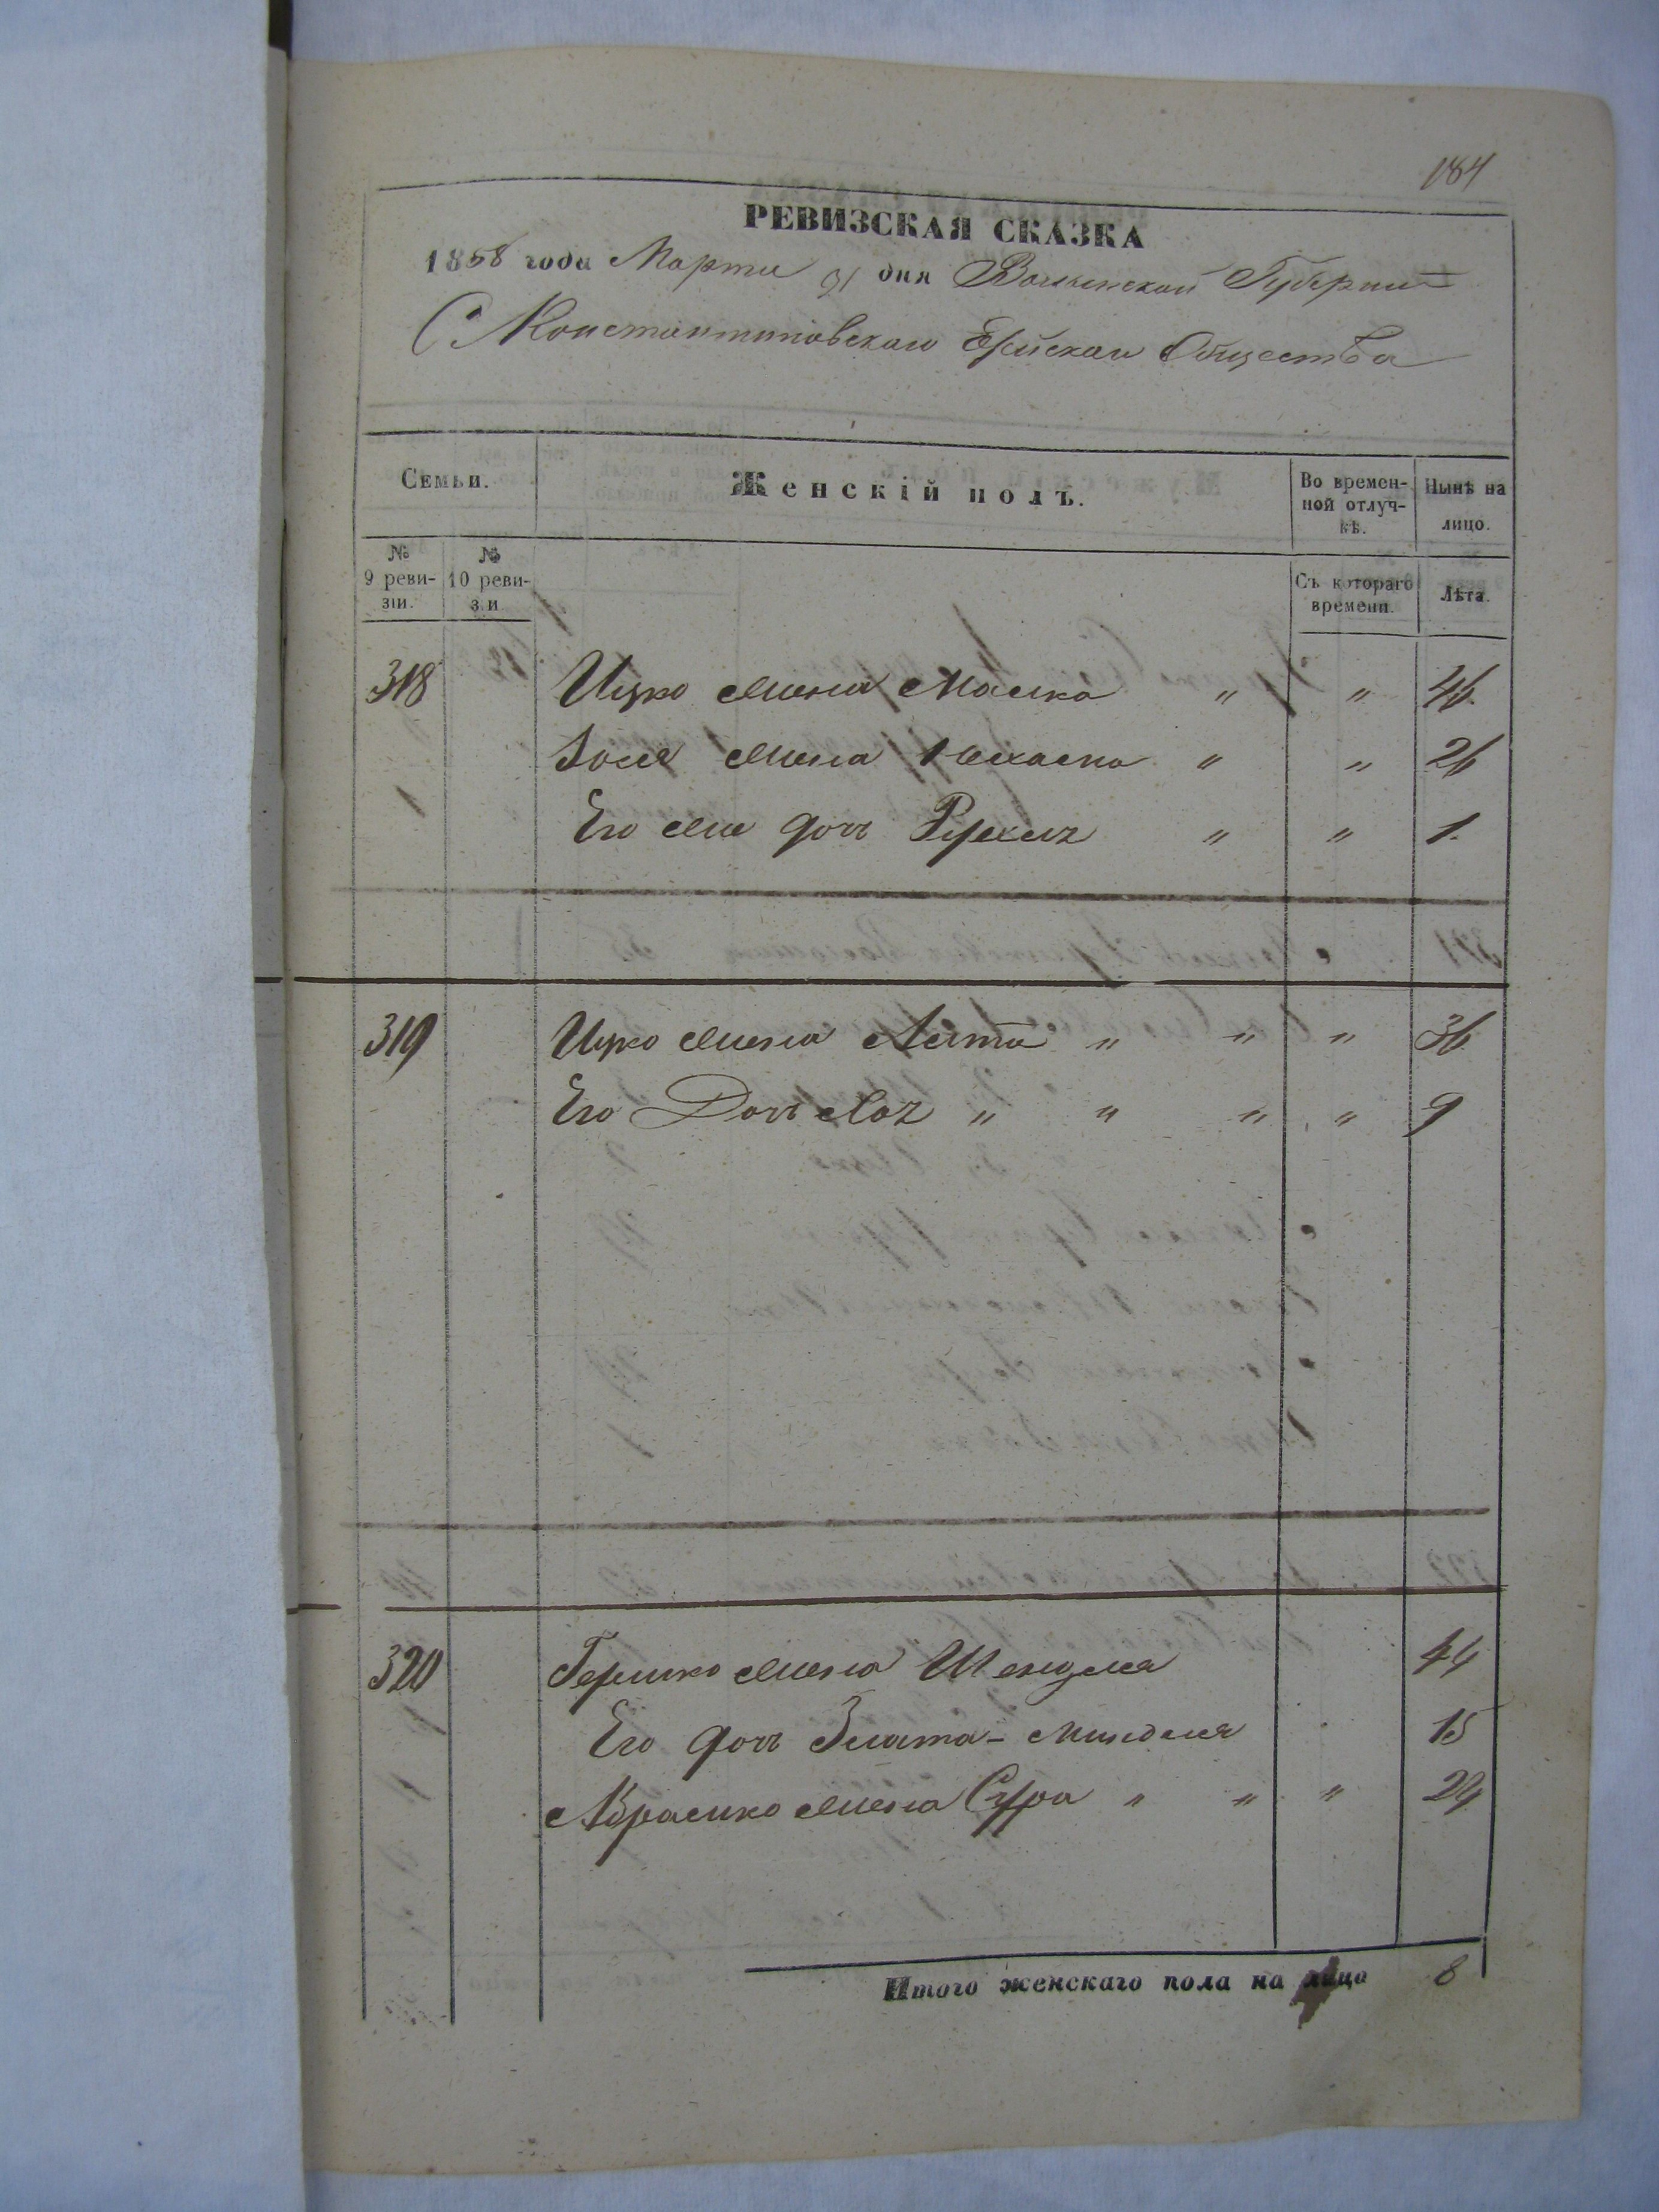 184
РЕВИЗСКАЯ СКАЗКА
1858 года Марта 31 дня Волынской Губернии
С Константиновскаго Еврейскаго Общества
Семьи.
Женскій полъ.
Во времен-
ной отлуч-
кѣ.
Нынѣ на
лицо.
№
9 реви-
зіи.
№
10 реви-
зіи
Съ котораго
времени.
Лѣта.
318 Ицко жена Малка " " 46
жена " " 26
Его доч Рухель " " 1.
319 Ицко жена " " " 36
Его Доч " " " " 9
320 Гершко жена Шендля 44
Его доч Злата-Миндля 15
Абрамко жена Сура " " " 24
Итого женскаго пола на лицо 8